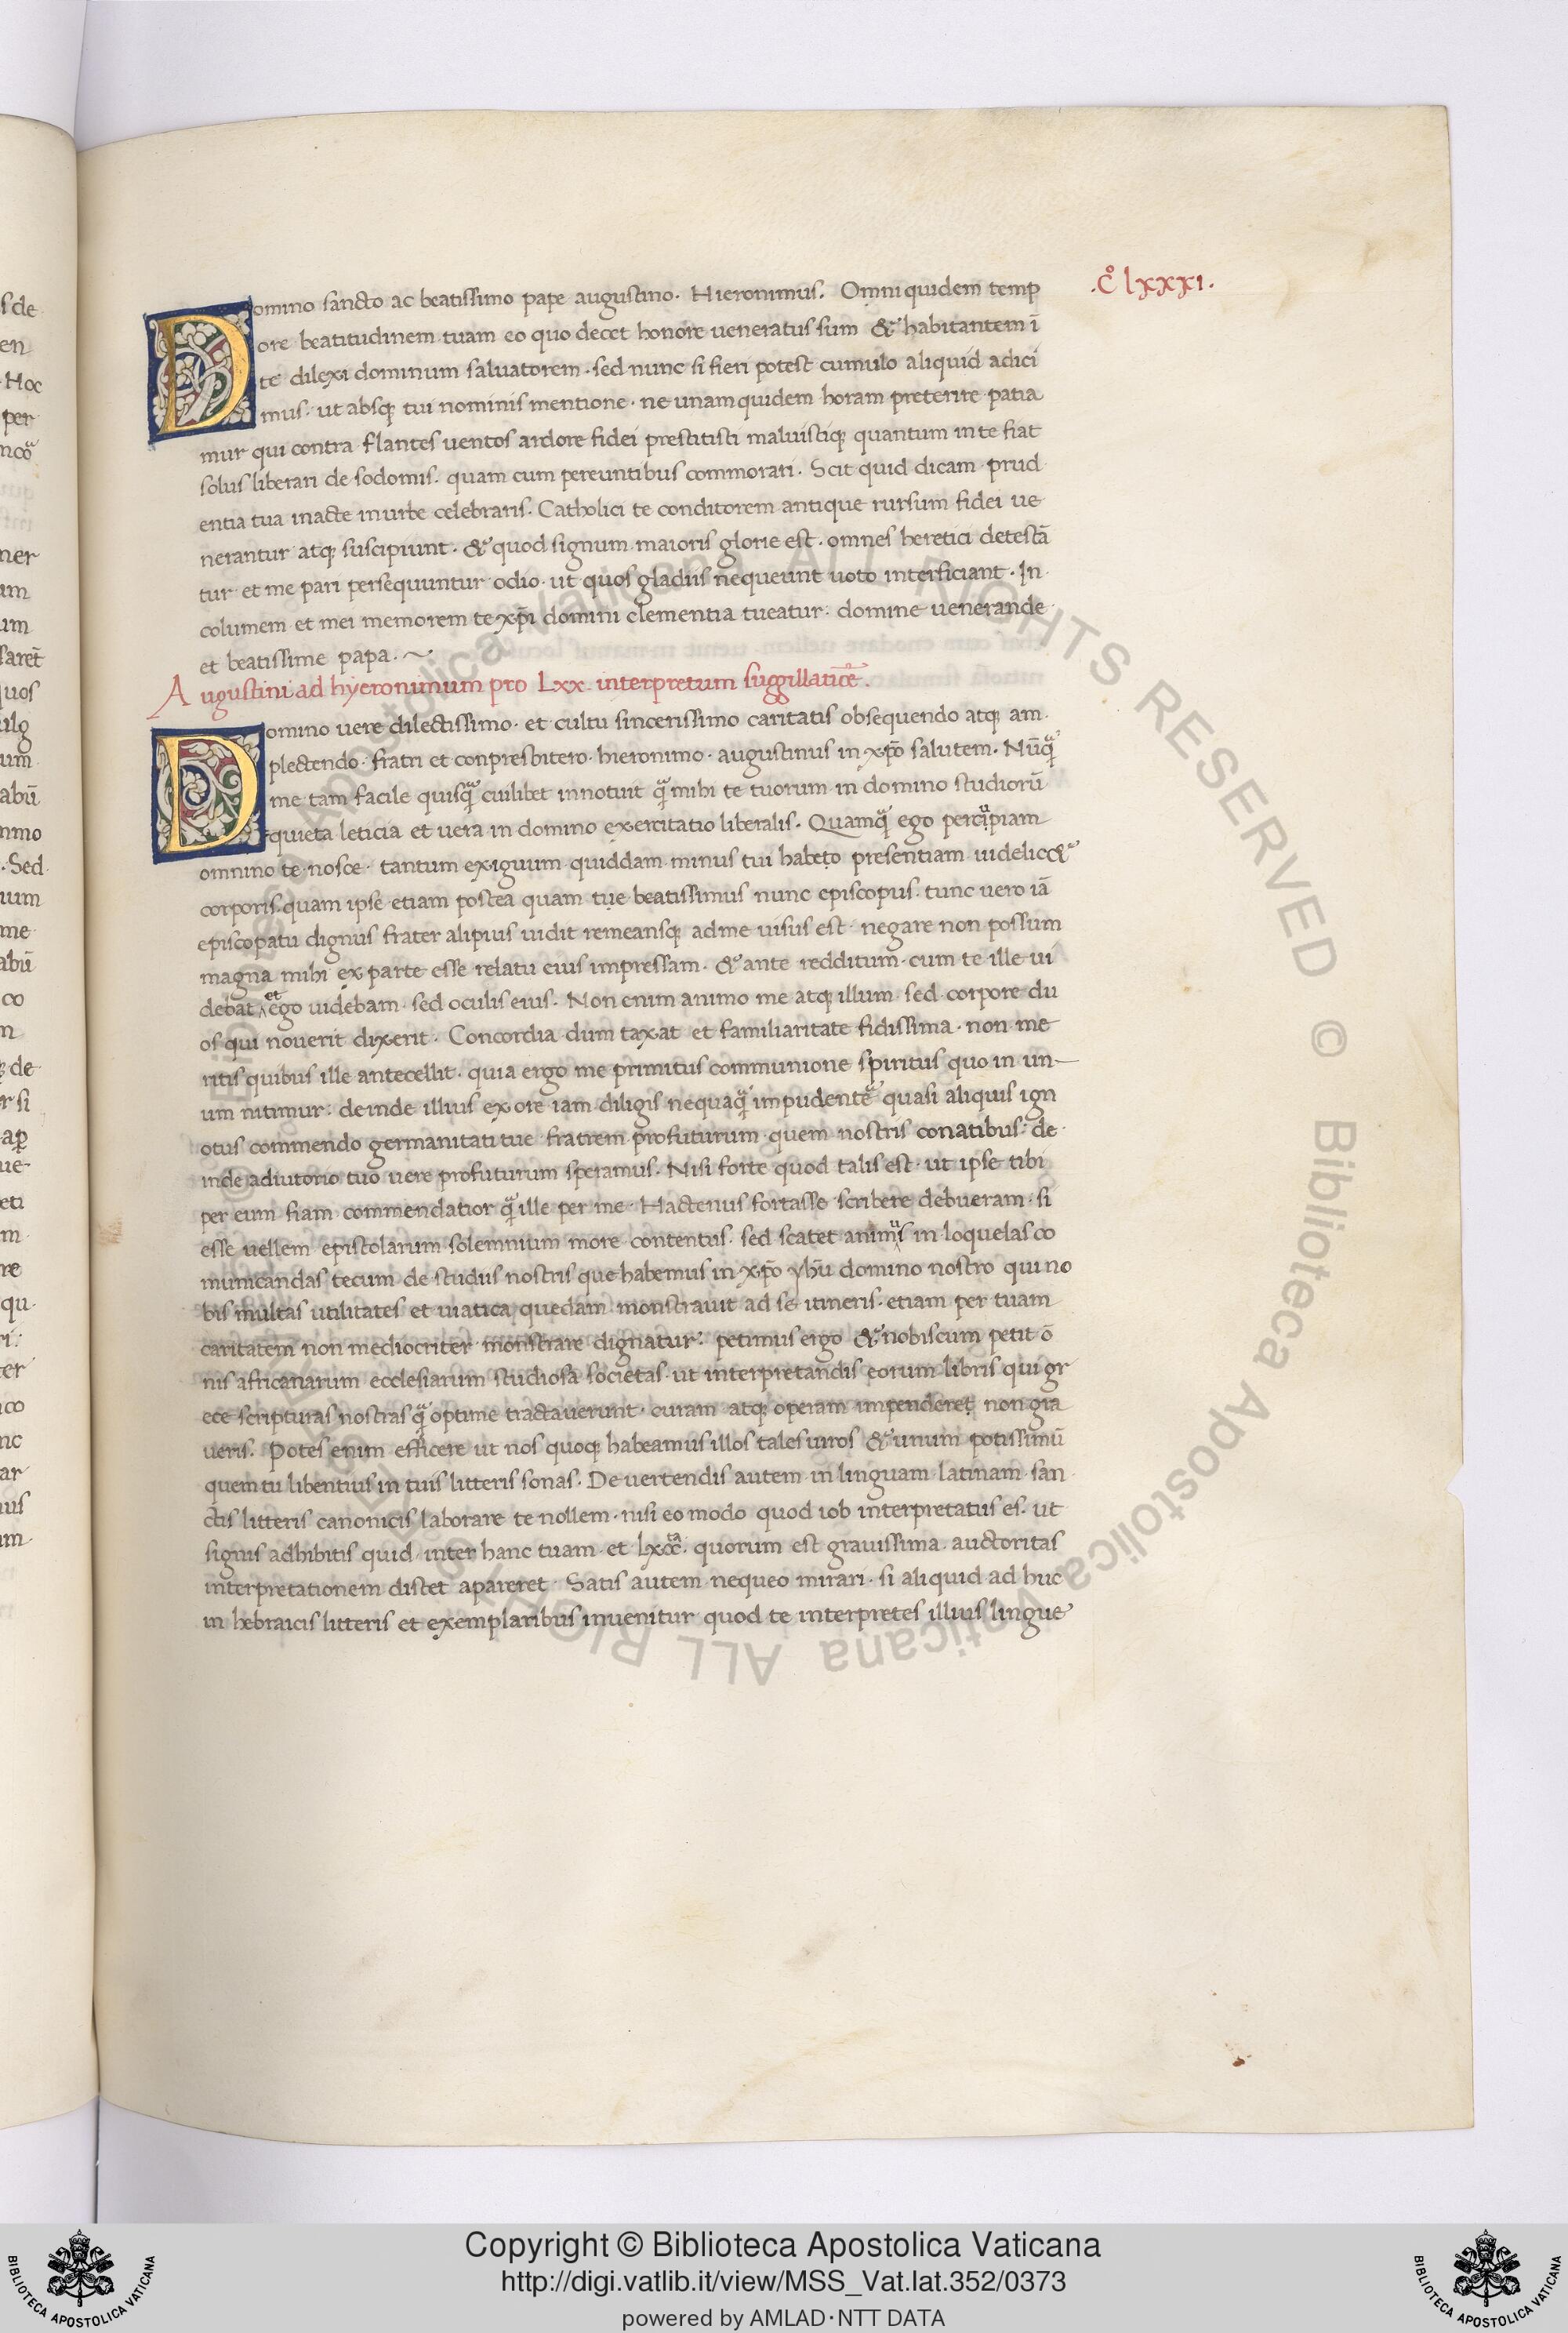 .c̊ lxxxi.
Domino sancto ac beatissimo pape augustino. Hieronimus. Omni quidem temp
ore beatitudinem tuam eo quo decet honore ueneratus sum & habitantem ī
te dilexi dominum saluatorem. sed nunc si fieri potest cumulo aliquid adici
mus. ut absq; tui nominis mentione. ne unam quidem horam preterire patia
mur qui contra flantes uentos ardore fidei prestitisti maluistiq; quantum in te fiat
solus liberari de sodomis. quam cum pereuntibus commorari. Scit quid dicam prud
entia tua inacte in urbe celebraris. Catholici te conditorem antique rursum fidei ue
nerantur atq; suscipiunt. & quod signum maioris glorie est. omnes heretici detestā
tur et me pari persequuntur odio. ut quos gladiis nequeunt uoto interficiant. In
columem et mei memorem te xp̄i domini clementia tueatur: domine uenerande
et beatissime papa. ~
Augustini ad hyeronimum pro Lxx. interpretum suggillatiōe.
Domino uere dilectissimo. et cultu sincerissimo caritatis obsequendo atq; am
plectendo. fratri et conpresbitero. hieronimo. augustinus in xp̄o salutem. Nūq̄
me tam facile quisq̄ cuilibet innotuit q̄ mihi te tuorum in domino studiorū
quieta leticia et uera in domino exercitatio liberalis. Quamq̄ ego percipiam
omnino te nosce. tantum exiguum quiddam minus tui habeto presentiam uidelic&
corporis. quam ipse etiam postea quam tue beatissimus nunc episcopus. tunc uero iā
episcopatu dignus frater alipius uidit remeansq; ad me uisus est. negare non possum
magna mihi ex parte esse relatu eius impressam. & ante redditum cum te ille ui
debat et ego uidebam. sed oculis eius. Non enim animo me atq; illum sed corpore du
os qui nouerit dixerit. Concordia dum taxat et familiaritate fidissima. non me
ritis quibus ille antecellit. quia ergo me primitus communione spiritus quo in un
um nitimur: deinde illius ex ore iam diligis nequaq̄ impudentē quasi aliquis ign
otus commendo germanitati tue fratrem profuturum quem nostris conatibus: de
inde adiutorio tuo uere profuturum speramus. Nisi forte quod talis est. ut ipse tibi
per eum fiam commendatior q̄ ille per me. Hactenus fortasse scribere debueram. si
esse uellem epistolarum solemnium more contentus. sed scatet animus in loquelas co
municandas tecum de studiis nostris que habemus in xp̄o yhū domino nostro qui no
bis multas utilitates et uiatica quedam monstrauit ad se itineris. etiam per tuam
caritatem non mediocriter monstrare dignatur: petimus ergo & nobiscum petit ō
nis africanarum ecclesiarum studiosa societas. ut interpretandis eorum libris qui gr
ece scripturas nostras q̄ optime tractauerunt. curam atq; operam impenderet non gra
ueris. Potes enim efficere ut nos quoq; habeamus illos tales uiros & unum potissimū
quem tu libentius in tuis litteris sonas. De uertendis autem in linguam latinam san
ctis litteris canonicis laborare te nollem. nisi eo modo quod iob interpretatus es. ut
signis adhibitis quid inter hanc tuam et quorum est grauissima auctoritas
interpretationem distet apareret. Satis autem nequeo mirari. si aliquid ad huc
in hebraicis litteris et exemplaribus inuenitur quod te interpretes illius lingue
Copyright © Biblioteca Apostolica Vaticana
http://digi.vatlib.it/view/MSS_Vat.lat.352/0373
powered by AMLAD·NTT DATA